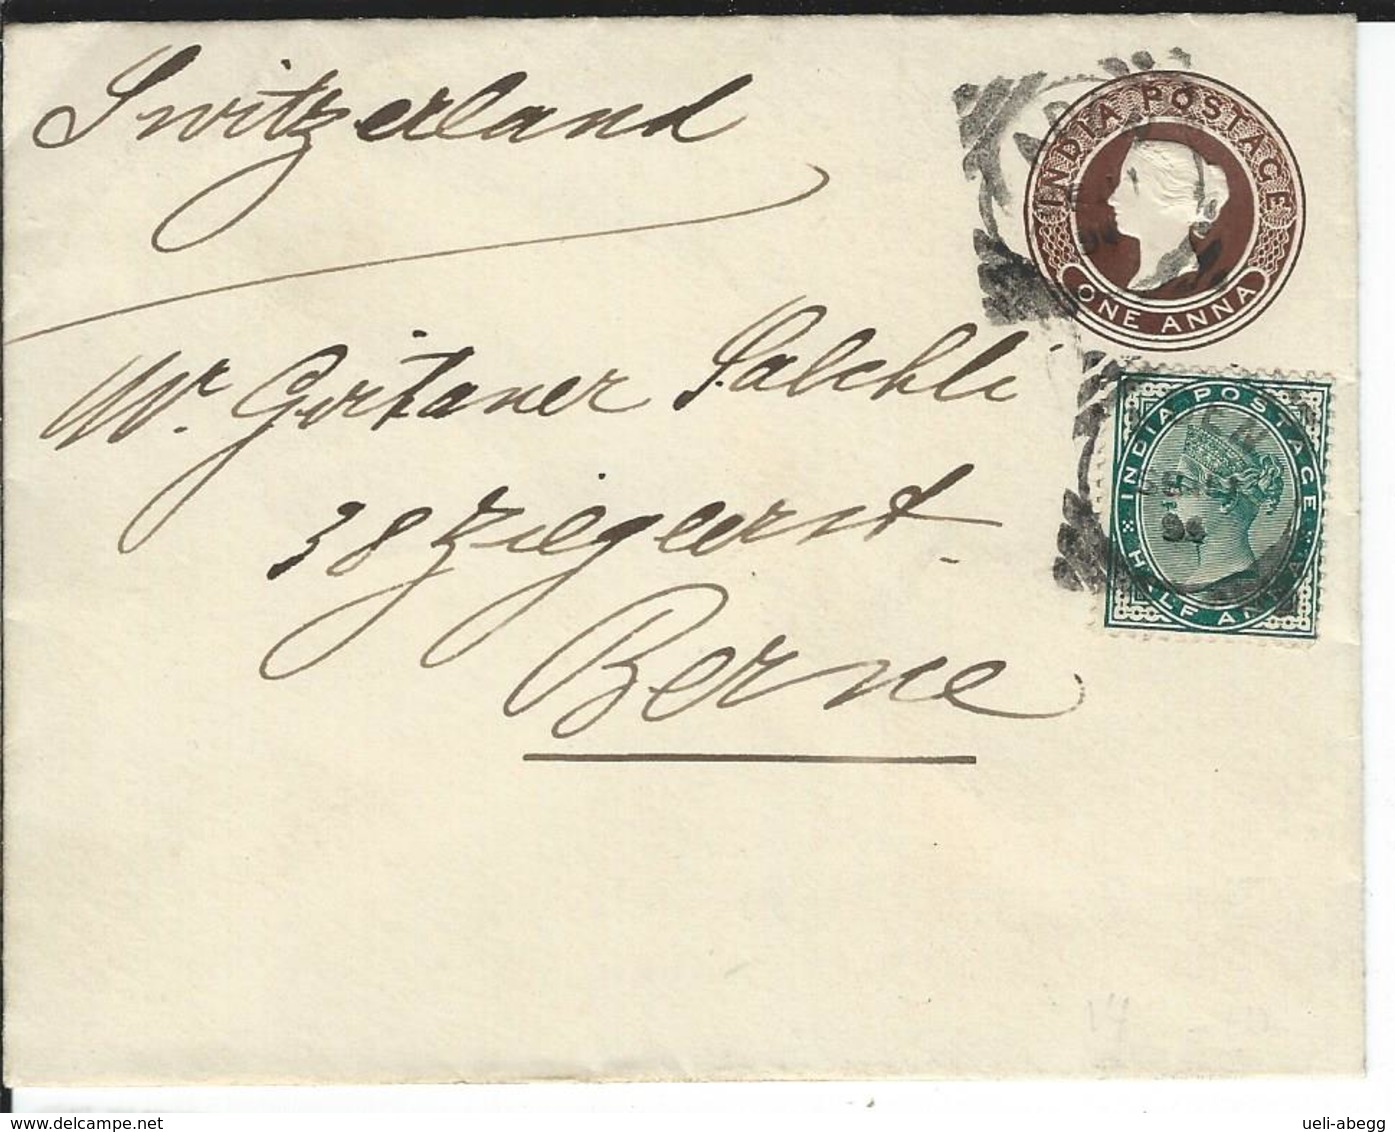 Switzerland
INDIA POSTAGE
ONE ANNA
Mr. Gortaner Salchli
INDIA POSTAGE
HALF ANNA
96
38 Zieglerst
Berne
V4
delcampe.net
ueli-abegg